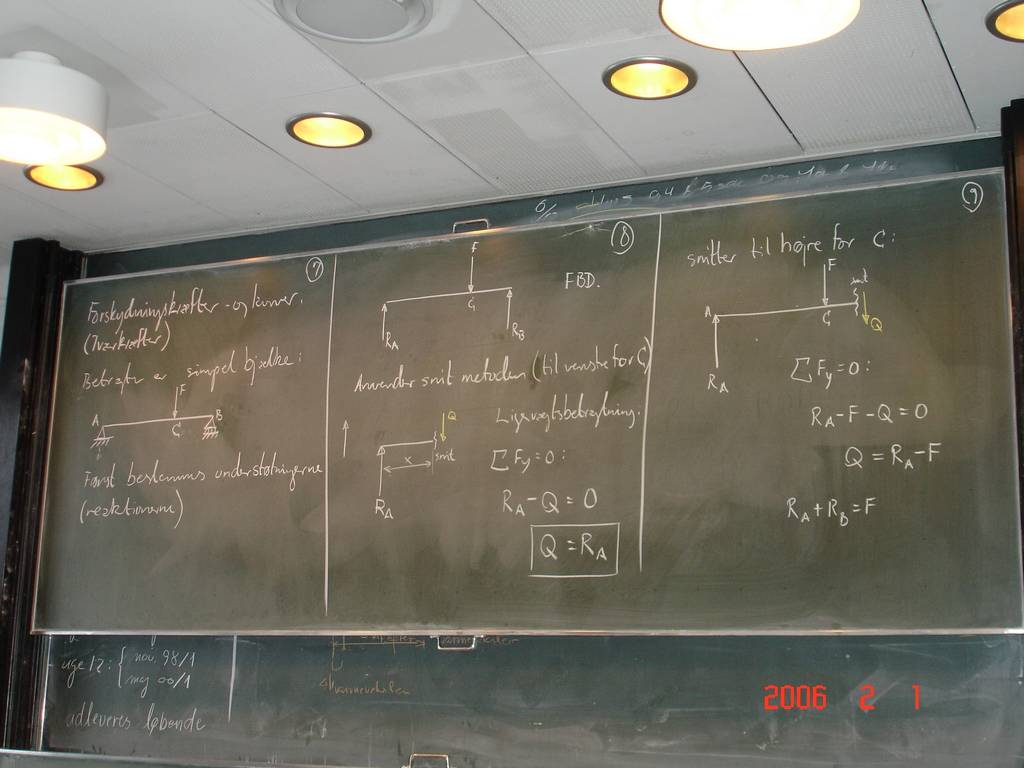 7
Forskydningskræfter - og kurver.
(Tværkræfter)
Betragter en simpel bjælke:
F
A
B
C
Først bestemmes understøtningerne
(reaktionerne)
8
F
FBD.
C
RA
RB
Anvender snit metoden (til venstre for C)
Q
snit
x
RA
Ligevægtsbetragtning.
∑Fy=0:
RA-Q=0
Q=RA
9
snitter til højre for C:
F
snit
A
C
Q
RA
∑Fy=0:
RA-F-Q=0
Q=RA-F
RA+RB=F
uge 12: { nov. 98/1
maj 00/1
adleveres løbende
2006 2 1